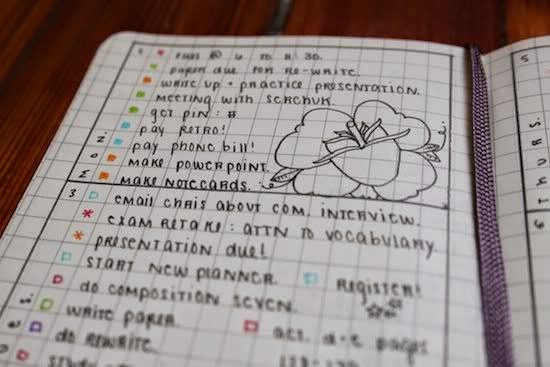 1
PAPER DUE FOR RE-WRITE.
WRITE UP + PRACTICE PRESENTATION.
MEETING WITH SERCHUK.
GOT PIN: #
PAY RETRO!
PAY PHONE BILL!
MAKE POWERPOINT.
MAKE NOTECARDS.
MON.
3 EMAIL CHRIS ABOUT COM. INTERVIEW.
EXAM RETAKE: ATTN TO VOCABULARY.
PRESENTATION DUE!
START NEW PLANNER.
REGISTER!
DO COMPOSITION SEVEN.
WRITE PAPER.
DO REWRITE.
ACT. a-e pages
STUDY
5
THURS.
6